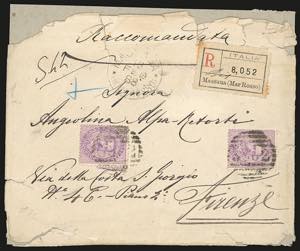 Raccomandata
ITALIA
R
8,052
Massaua (Mar Rosso)
Signora
Angiolina Alpa-Retorti
Via della Costa S. Giorgio
Nº 46 - Piano 2º
Firenze